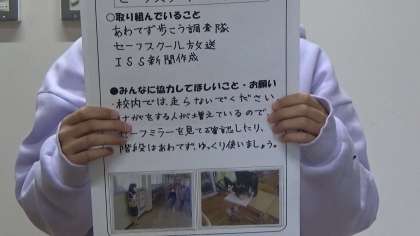 ○取り組んでいること
あわてず歩こう調査隊
セーフスクール放送
ISS新聞作成
●みんなに協力してほしいこと・お願い
・校内では走らないでください
けがをする人が増えているので
セーフミラーを見て確認したり、
階段はあわてず、ゆっくり使いましょう。